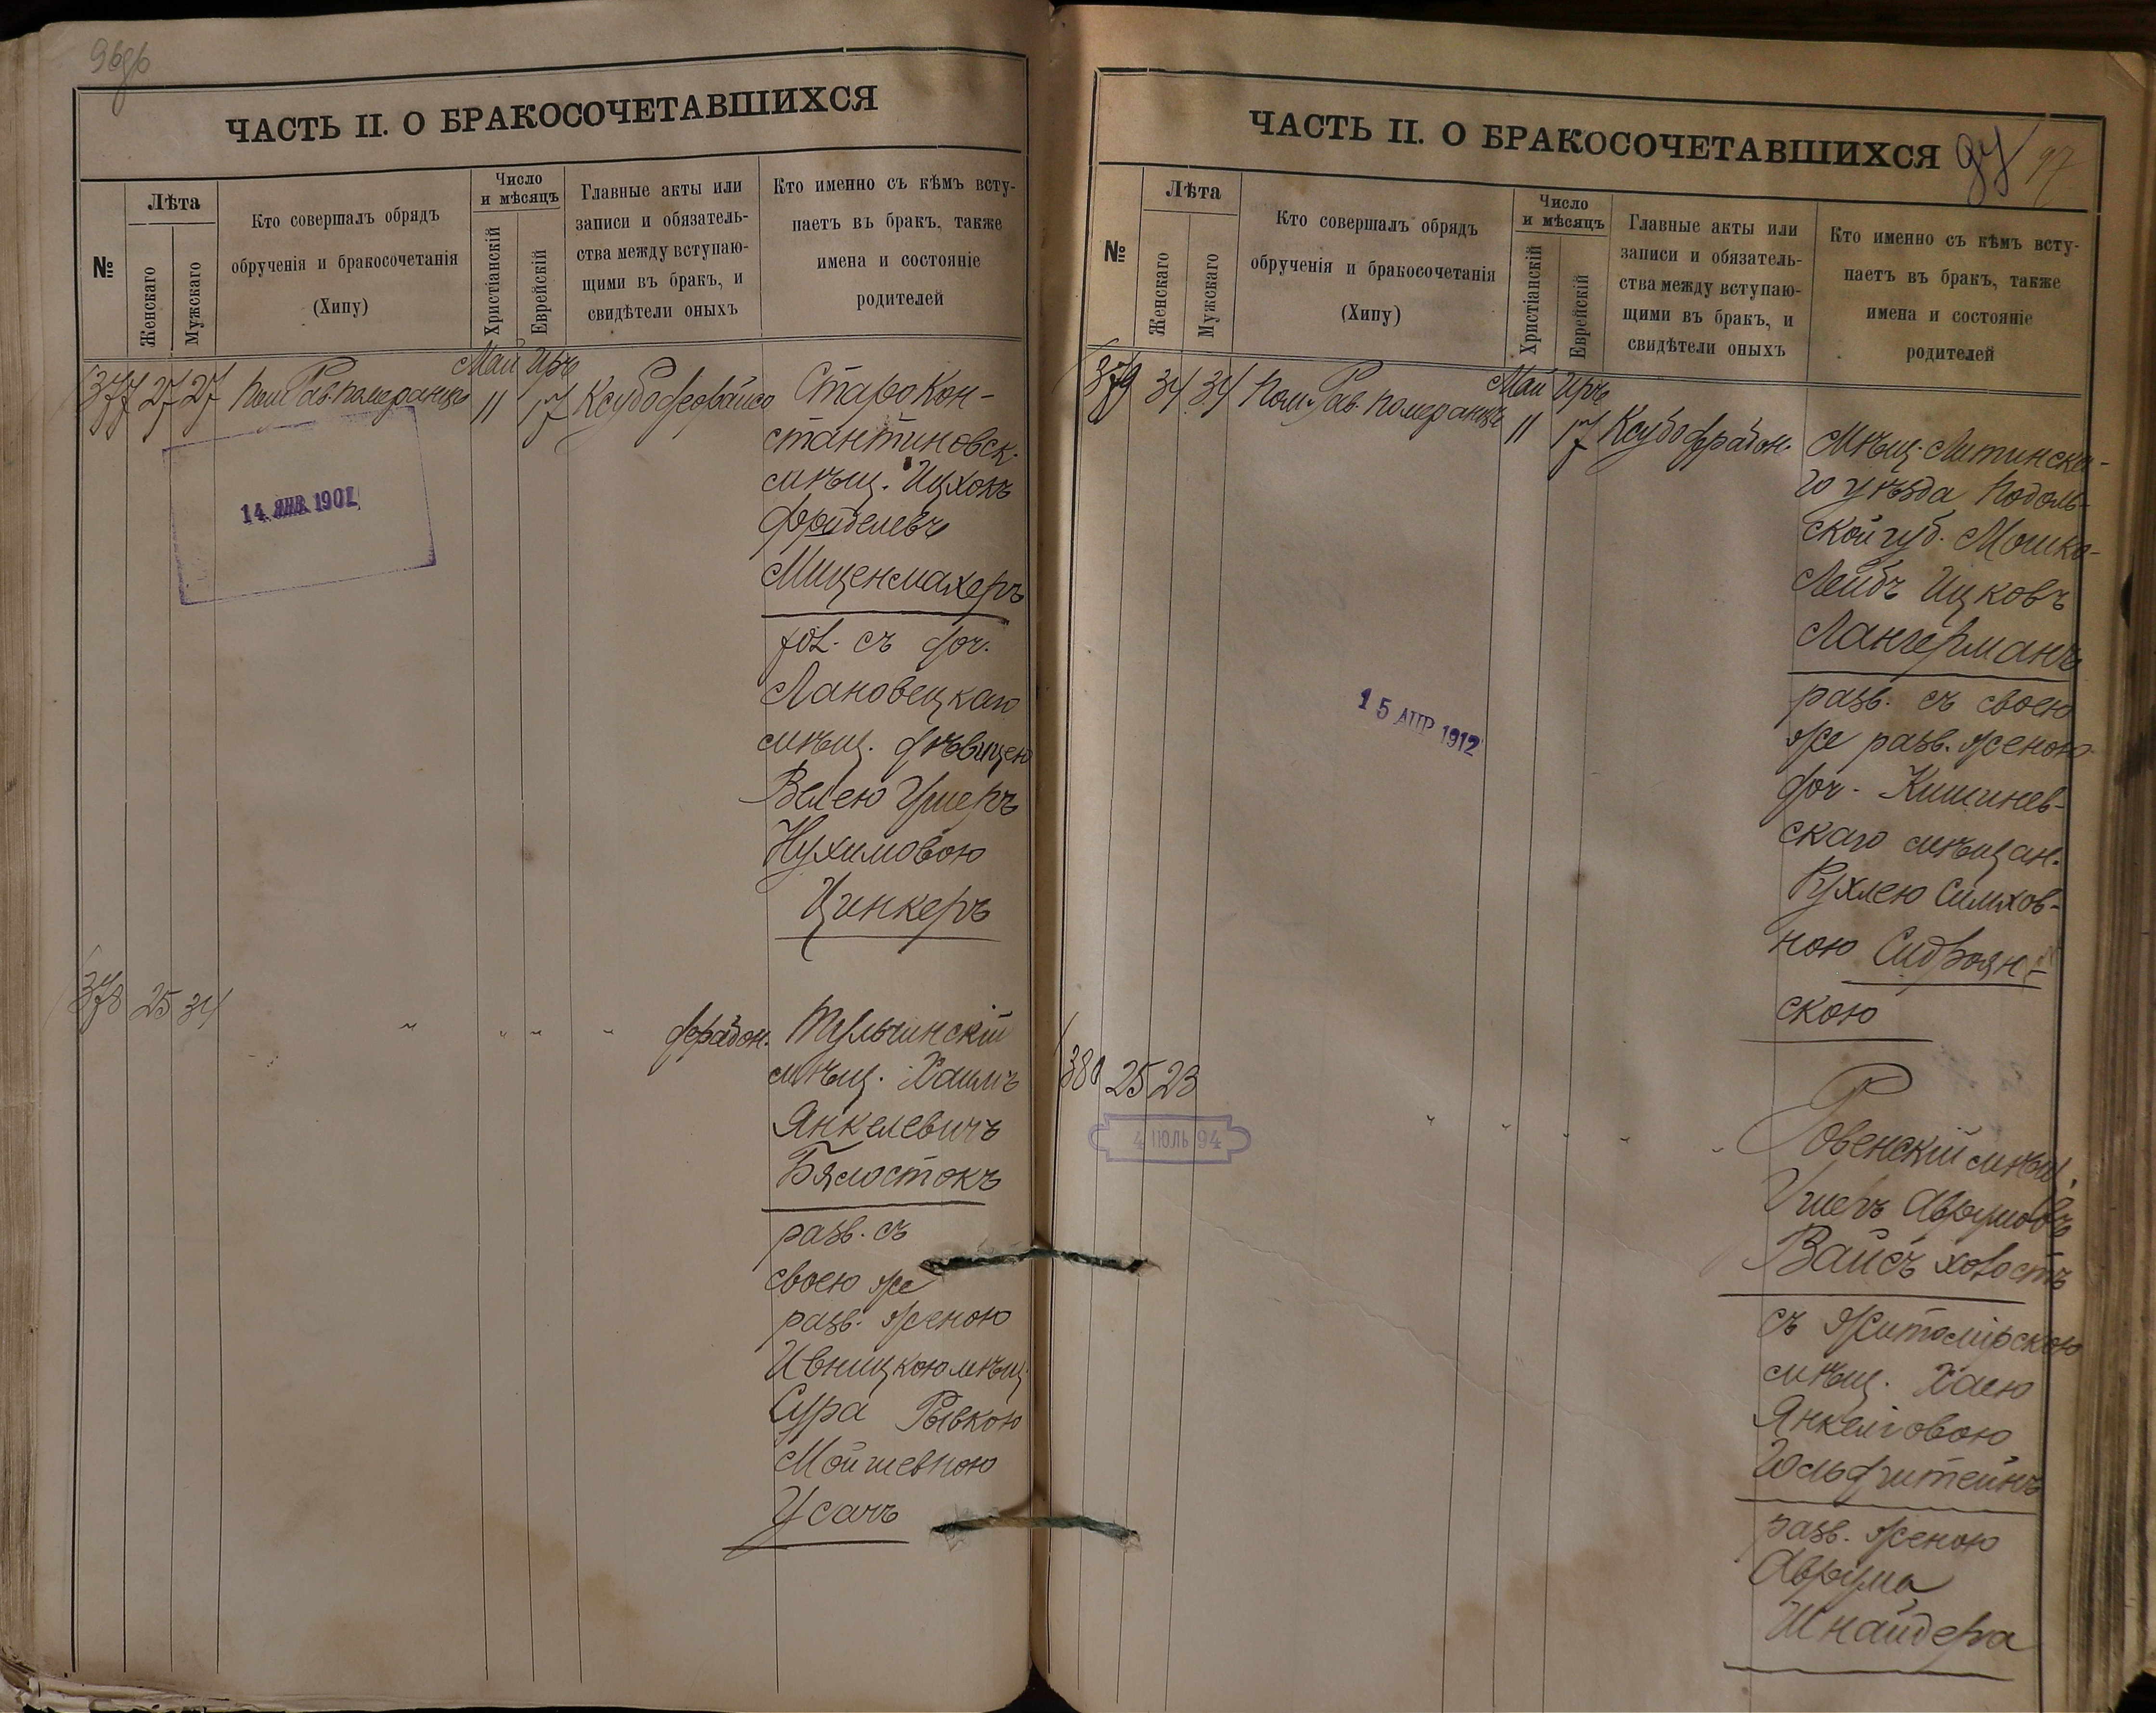 96об
ЧАСТЬ II. О БРАКОСОЧЕТАВШИХСЯ
№
Лѣта
Женскаго
Мужскаго
Кто совершалъ обрядъ
обрученія и бракосочетанія
(Хипу)
Число
и мѣсяцъ
Христіанскій
Еврейскій
Главные акты или
записи и обязатель-
ства между вступаю-
щими въ бракъ, и
свидѣтели оныхъ
Кто именно съ кѣмъ всту-
паетъ въ бракъ, также
имена и состояніе
родителей
Май Иръ
377 27 27 Пом. Рав. Померанцъ 11 17
14 ЯНВ 1901
Старокон-
стантиновск.
мѣщ. Ицхокъ
Фройделевъ
Миценмахеръ
хол. съ доч.
Лановецкаго
мѣщ. дѣвицею
Велею Ушеръ
Нухимовою
Цинкеръ
378 25 34
Тульчинскій
мѣщ. Хаимъ
Янкелевичъ
Бялостокъ
разв. съ
своею же
разв. женою
Ивницкою мѣщ.
Сура Рывкою
Мойшевною
Усачъ
ЧАСТЬ II. О БРАКОСОЧЕТАВШИХСЯ
97 97
№
Лѣта
Женскаго
Мужскаго
Кто совершалъ обрядъ
обрученія и бракосочетанія
(Хипу)
Число
и мѣсяцъ
Христіанскій
Еврейскій
Главные акты или
записи и обязатель-
ства между вступаю-
щими въ бракъ, и
свидѣтели оныхъ
Кто именно съ кѣмъ всту-
паетъ въ бракъ, также
имена и состояніе
родителей
Май Иръ
379 34 34 Пом. Рав. Померанцъ 11 17
15 АПР 1912
Мѣщ. Литинска-
го уѣзда Подоль-
ской губ. Мошко-
Лейбъ Ицковъ
Лангерманъ
разв. съ своею
же разв. женою
доч. Кишинев-
скаго мѣщан.
Рухлею Симхов-
ною Сидроян-
скою
380 25 23
4 ІЮЛЬ 94
Ровенскій мѣщ.
Ушеръ Аврумовъ
Вайсъ холостъ
съ Житомірскою
мѣщ. Хаею
Янкелiовою
Гольдштейнъ
разв. женою
Аврума
Шнайдера